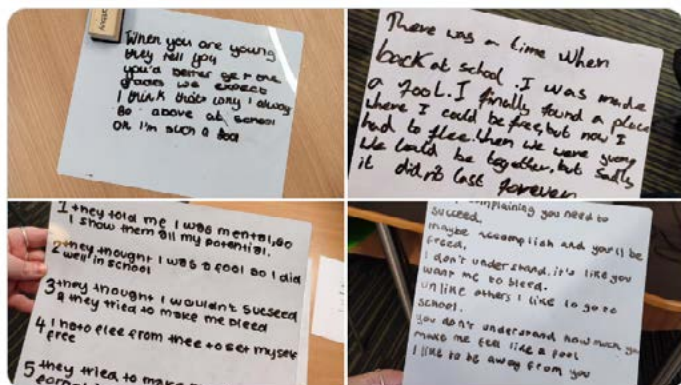 When you are young
they tell you
you'd better get the
grades we expect
I think that's why I always
go above at school
oh I'm such a fool
There was a time when
back at school. I was made
a fool. I finally found a place
where I could be free, but now I
had to flee. when we were young
we could be together, but sadly
it didn't last forever
1 they told me I was mental, so
I show them all my potential.
2 they thought I was a fool so I did
well in school
3 they thought I wouldn't sucseed
& they tried to make me bleed
4 I had to flee from thee to set myself
free
5 they tried to make
complaining you need to
succeed.
maybe accomplish and you'll be
freed.
I don't understand. it's like you
want me to bleed.
unlike others I like to go to
school.
you don't understand how much you
make me feel like a fool
I like to be away from you